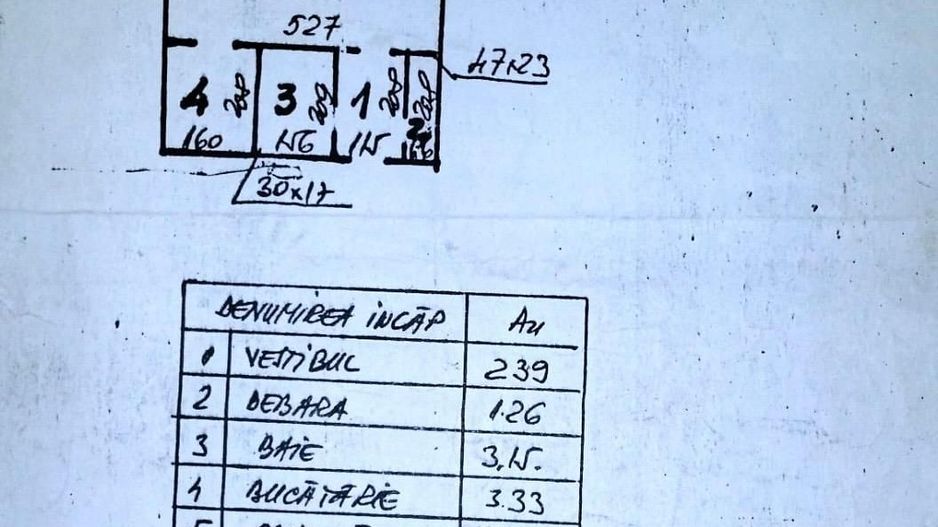 527
47x23
4
208
3
209
1
208
208
2
160
156
115
30x17
DENUMIREA ÎNCĂP Au
1 VESTIBUL 2.39
2 DEBARA 1.26
3 BAIE 3,15.
4 BUCĂTĂRIE 3.33
5